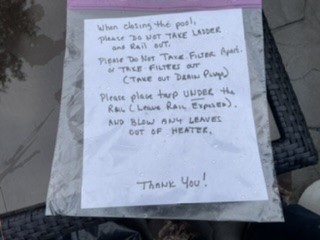 When closing the pool,
please DO NOT TAKE LADDER
and Rail OUT.
Please Do Not Take Filter Apart.
or Take Filters out
(Take out Drain Plugs)
Please place tarp UNDER the
Rail (Leave Rail Exposed).
AND BLOW ANY LEAVES
OUT OF HEATER.
THANK YOU!